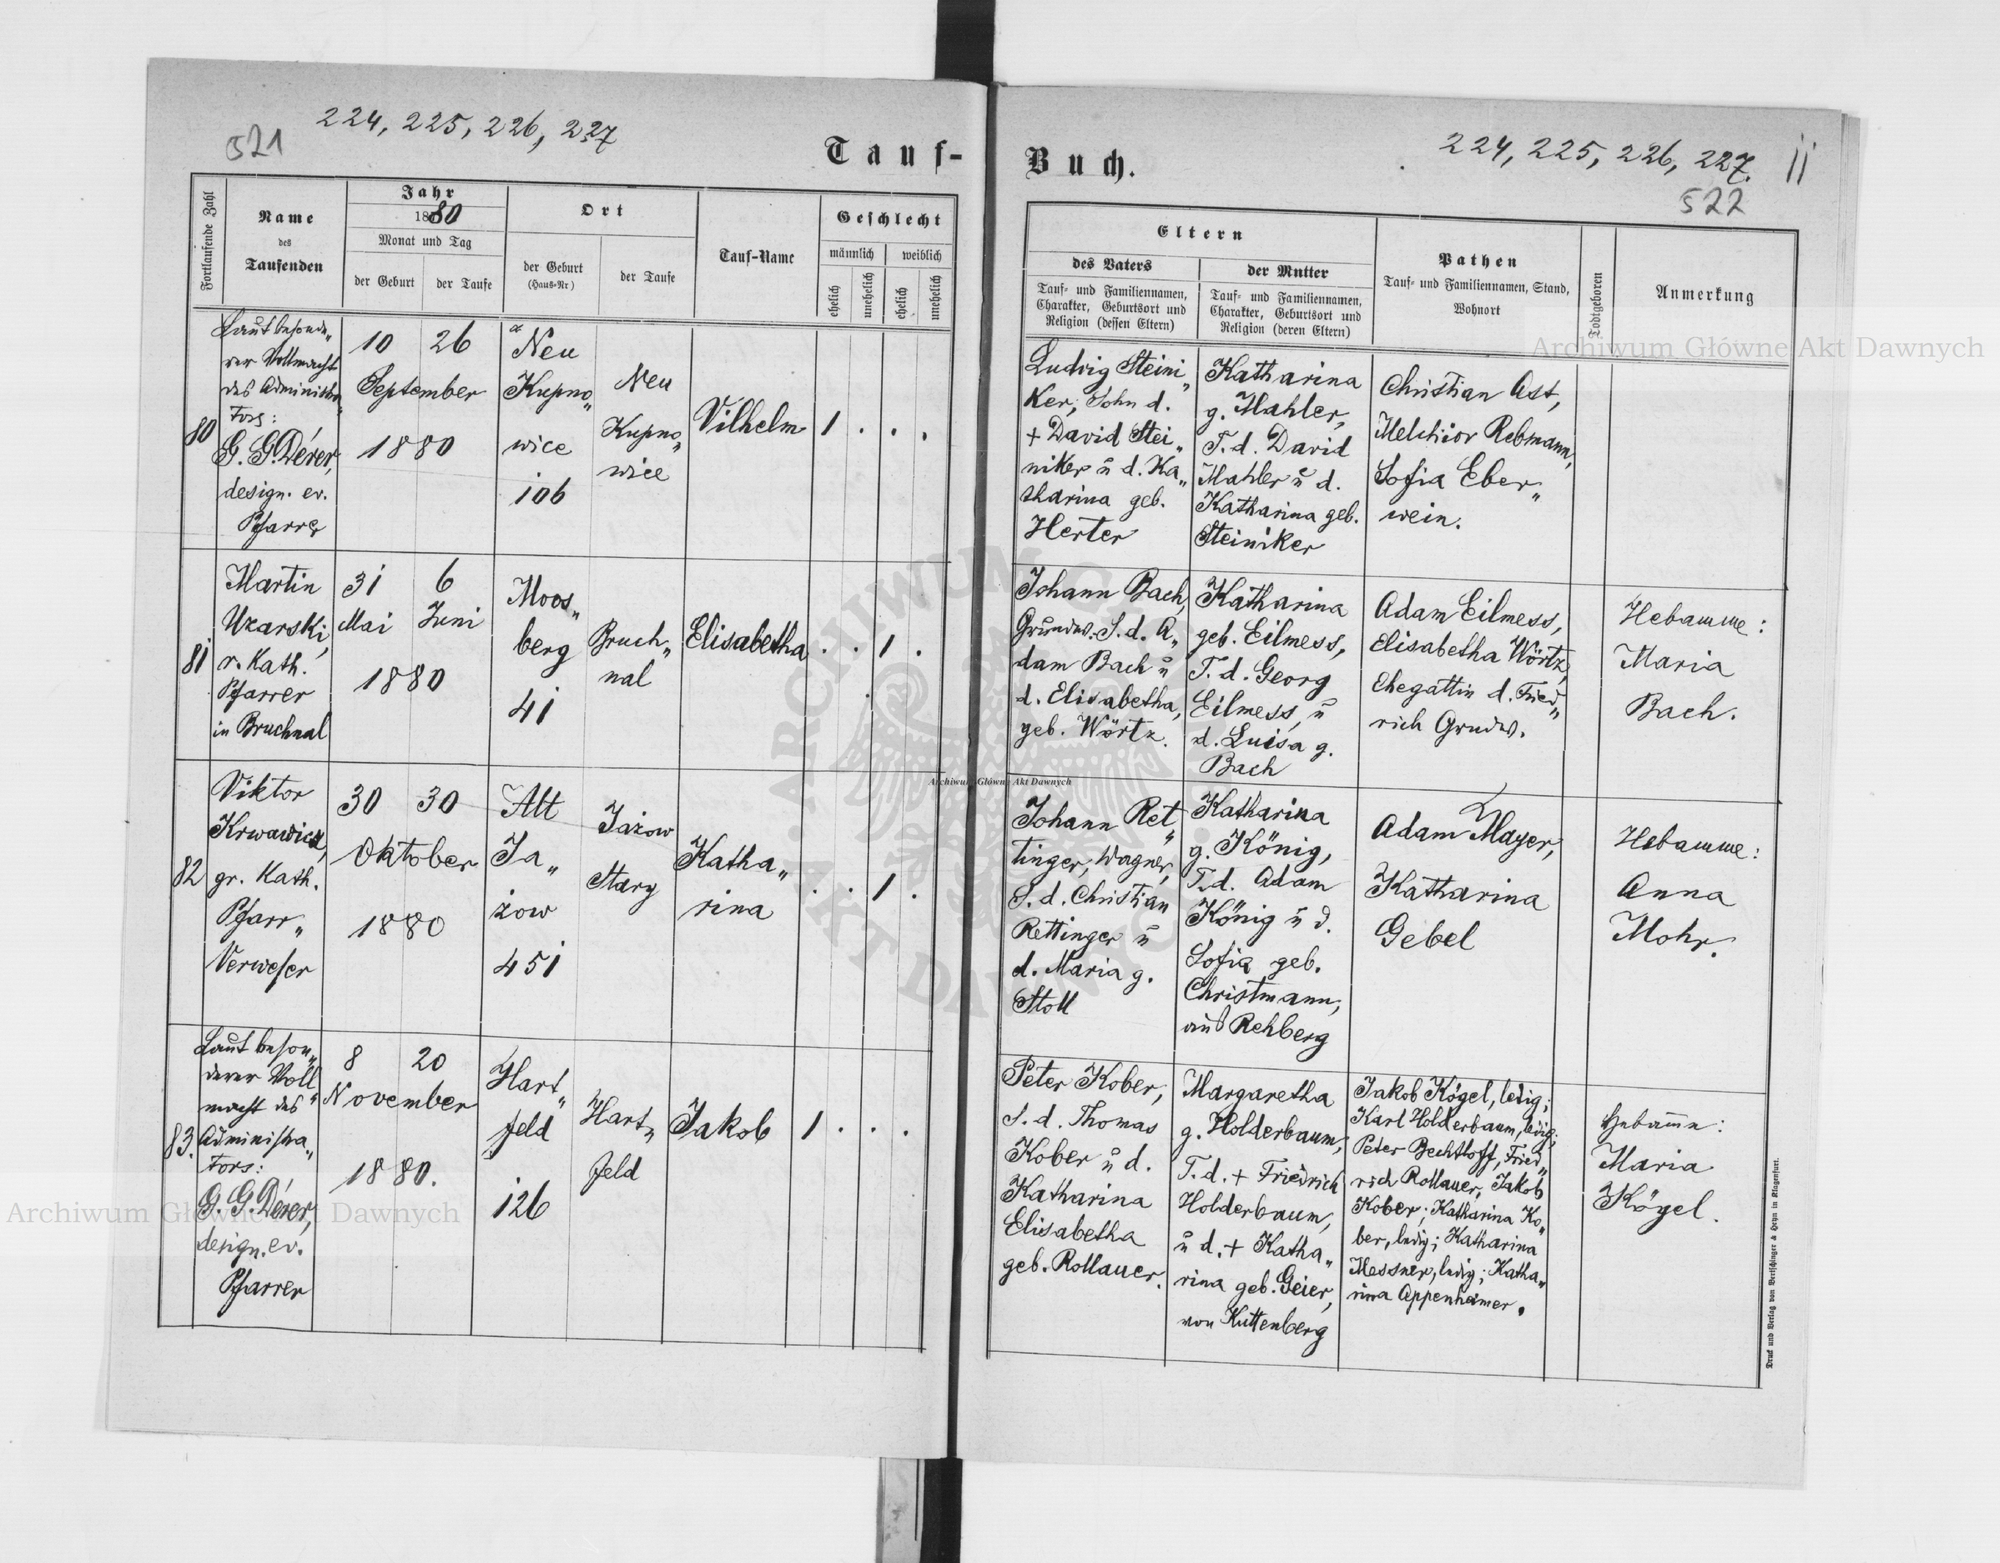 224, 225, 226, 227
521
Tauf-
Fortlaufende Zahl
Name
des
Taufenden
Jahr
1880
Monat und Tag
der Geburt
der Taufe
Ort
der Geburt
(Haus-Nr)
der Taufe
Tauf-Name
Geschlecht
männlich
weiblich
ehelich
unehelich
ehelich
unehelich
80
Laut besonde„
rer Vollmacht
des Administra„
tors:
G. G. Dérer,
design. ev.
Pfarrer
10 26
September
1880
Neu
Kupno„
wice
106
Neu
Kupno„
wice
Vilhelm
1 . . .
81
Martin
Uzarski,
r. Kath.
Pfarrer
in Bruchnal
31 6
Mai Juni
1880
Moos„
berg
41
Bruch„
nal
Elisabetha
. . 1 .
82
Viktor
Krwawicz,
gr. Kath.
Pfarr„
Verweser
30 30
Oktober
1880
Alt
Ja„
żow
451
Jażow
Stary
Katha„
rina
. . 1 .
83.
Laut beson„
derer Voll„
macht des
Administra„
tors:
G. G. Dérer,
design. ev.
Pfarrer
8 20
November
1880.
Hart„
feld
126
Hart„
feld
Jakob
1 . . .
224, 225, 226, 227.
11
522
Buch.
Eltern
des Vaters
Tauf- und Familiennamen,
Charakter, Geburtsort und
Religion (dessen Eltern)
der Mutter
Tauf- und Familiennamen,
Charakter, Geburtsort und
Religion (deren Eltern)
Pathen
Tauf- und Familiennamen, Stand,
Wohnort
Todtgeboren
Anmerkung
Ludvig Steini„
ker, Sohn d.
+ David Stei„
niker u d. Ka„
tharina geb.
Herter
Katharina
g. Mahler,
T. d. David
Mahler u d.
Katharina geb.
Steiniker
Christian Ast,
Melchior Rebmann,
Sofia Eber„
wein.
Johann Bach,
Grundw. S. d. A„
dam Bach u
d. Elisabetha,
geb. Wörtz.
Katharina
geb. Eilmess,
T. d. Georg
Eilmess, u
d. Luisa g.
Bach
Adam Eilmess,
Elisabetha Wörtz,
Ehegattin d. Fried„
rich Grundw.
Hebamme:
Maria
Bach.
Johann Ret„
tinger, Wagner,
S. d. Christian
Rettinger u
d. Maria g.
Stoll
Katharina
g. König,
T. d. Adam
König u d.
Sofia geb.
Christmann,
aus Rehberg
Adam Mayer,
Katharina
Gebel
Hebamme:
Anna
Mohr.
Peter Kober,
S. d. Thomas
Kober u d.
Katharina
Elisabetha
geb. Rollauer.
Margaretha
g. Holderbaum,
T. d. + Friedrich
Holderbaum,
u d. + Katha„
rina geb. Geier,
von Kuttenberg
Jakob Kögel, ledig;
Karl Holderbaum, ledig;
Peter Bechtloff, Fried„
rich Rollauer, Jakob
Kober; Katharina Ko„
ber, ledig; Katharina
Messner, ledig; Katha„
rina Appenheimer.
Hebamme:
Maria
Kögel.
Druck und Verlag von Bertschinger & Heyn in Klagenfurt.
Archiwum Główne Akt Dawnych
Archiwum Główne Akt Dawnych
Archiwum Główne Akt Dawnych
ARCHIWUM GŁÓWNE AKT DAWNYCH